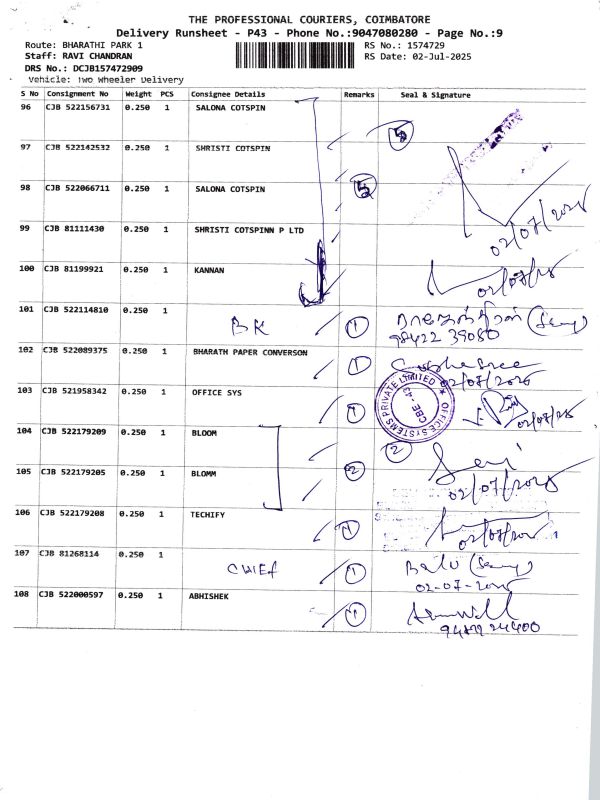 THE PROFESSIONAL COURIERS, COIMBATORE
Delivery Runsheet - P43 - Phone No.:9047080280 - Page No.:9
Route: BHARATHI PARK 1
RS No.: 1574729
Staff: RAVI CHANDRAN
RS Date: 02-Jul-2025
DRS No.: DCJB157472909
Vehicle: Two Wheeler Delivery
S No Consignment No Weight PCS Consignee Details Remarks Seal & Signature
96 CJB 522156731 0.250 1 SALONA COTSPIN
5
97 CJB 522142532 0.250 1 SHRISTI COTSPIN
98 CJB 522066711 0.250 1 SALONA COTSPIN 5
02/07/2025
99 CJB 81111430 0.250 1 SHRISTI COTSPINN P LTD
100 CJB 81199921 0.250 1 KANNAN
02/07/25
101 CJB 522114810 0.250 1
BK 1
98422 39080
102 CJB 522089375 0.250 1 BHARATH PAPER CONVERSON 1
02/07/2025
103 CJB 521958342 0.250 1 OFFICE SYS 1
OFFICE SYSTEMS PRIVATE LIMITED
CBE - 43
02/07/25
104 CJB 522179209 0.250 1 BLOOM 2
105 CJB 522179205 0.250 1 BLOMM 2
02/07/2025
106 CJB 522179208 0.250 1 TECHIFY 1
02/07/2025
107 CJB 81268114 0.250 1
CHIEF 1 Balu
02-07-2025
108 CJB 522000597 0.250 1 ABHISHEK 1